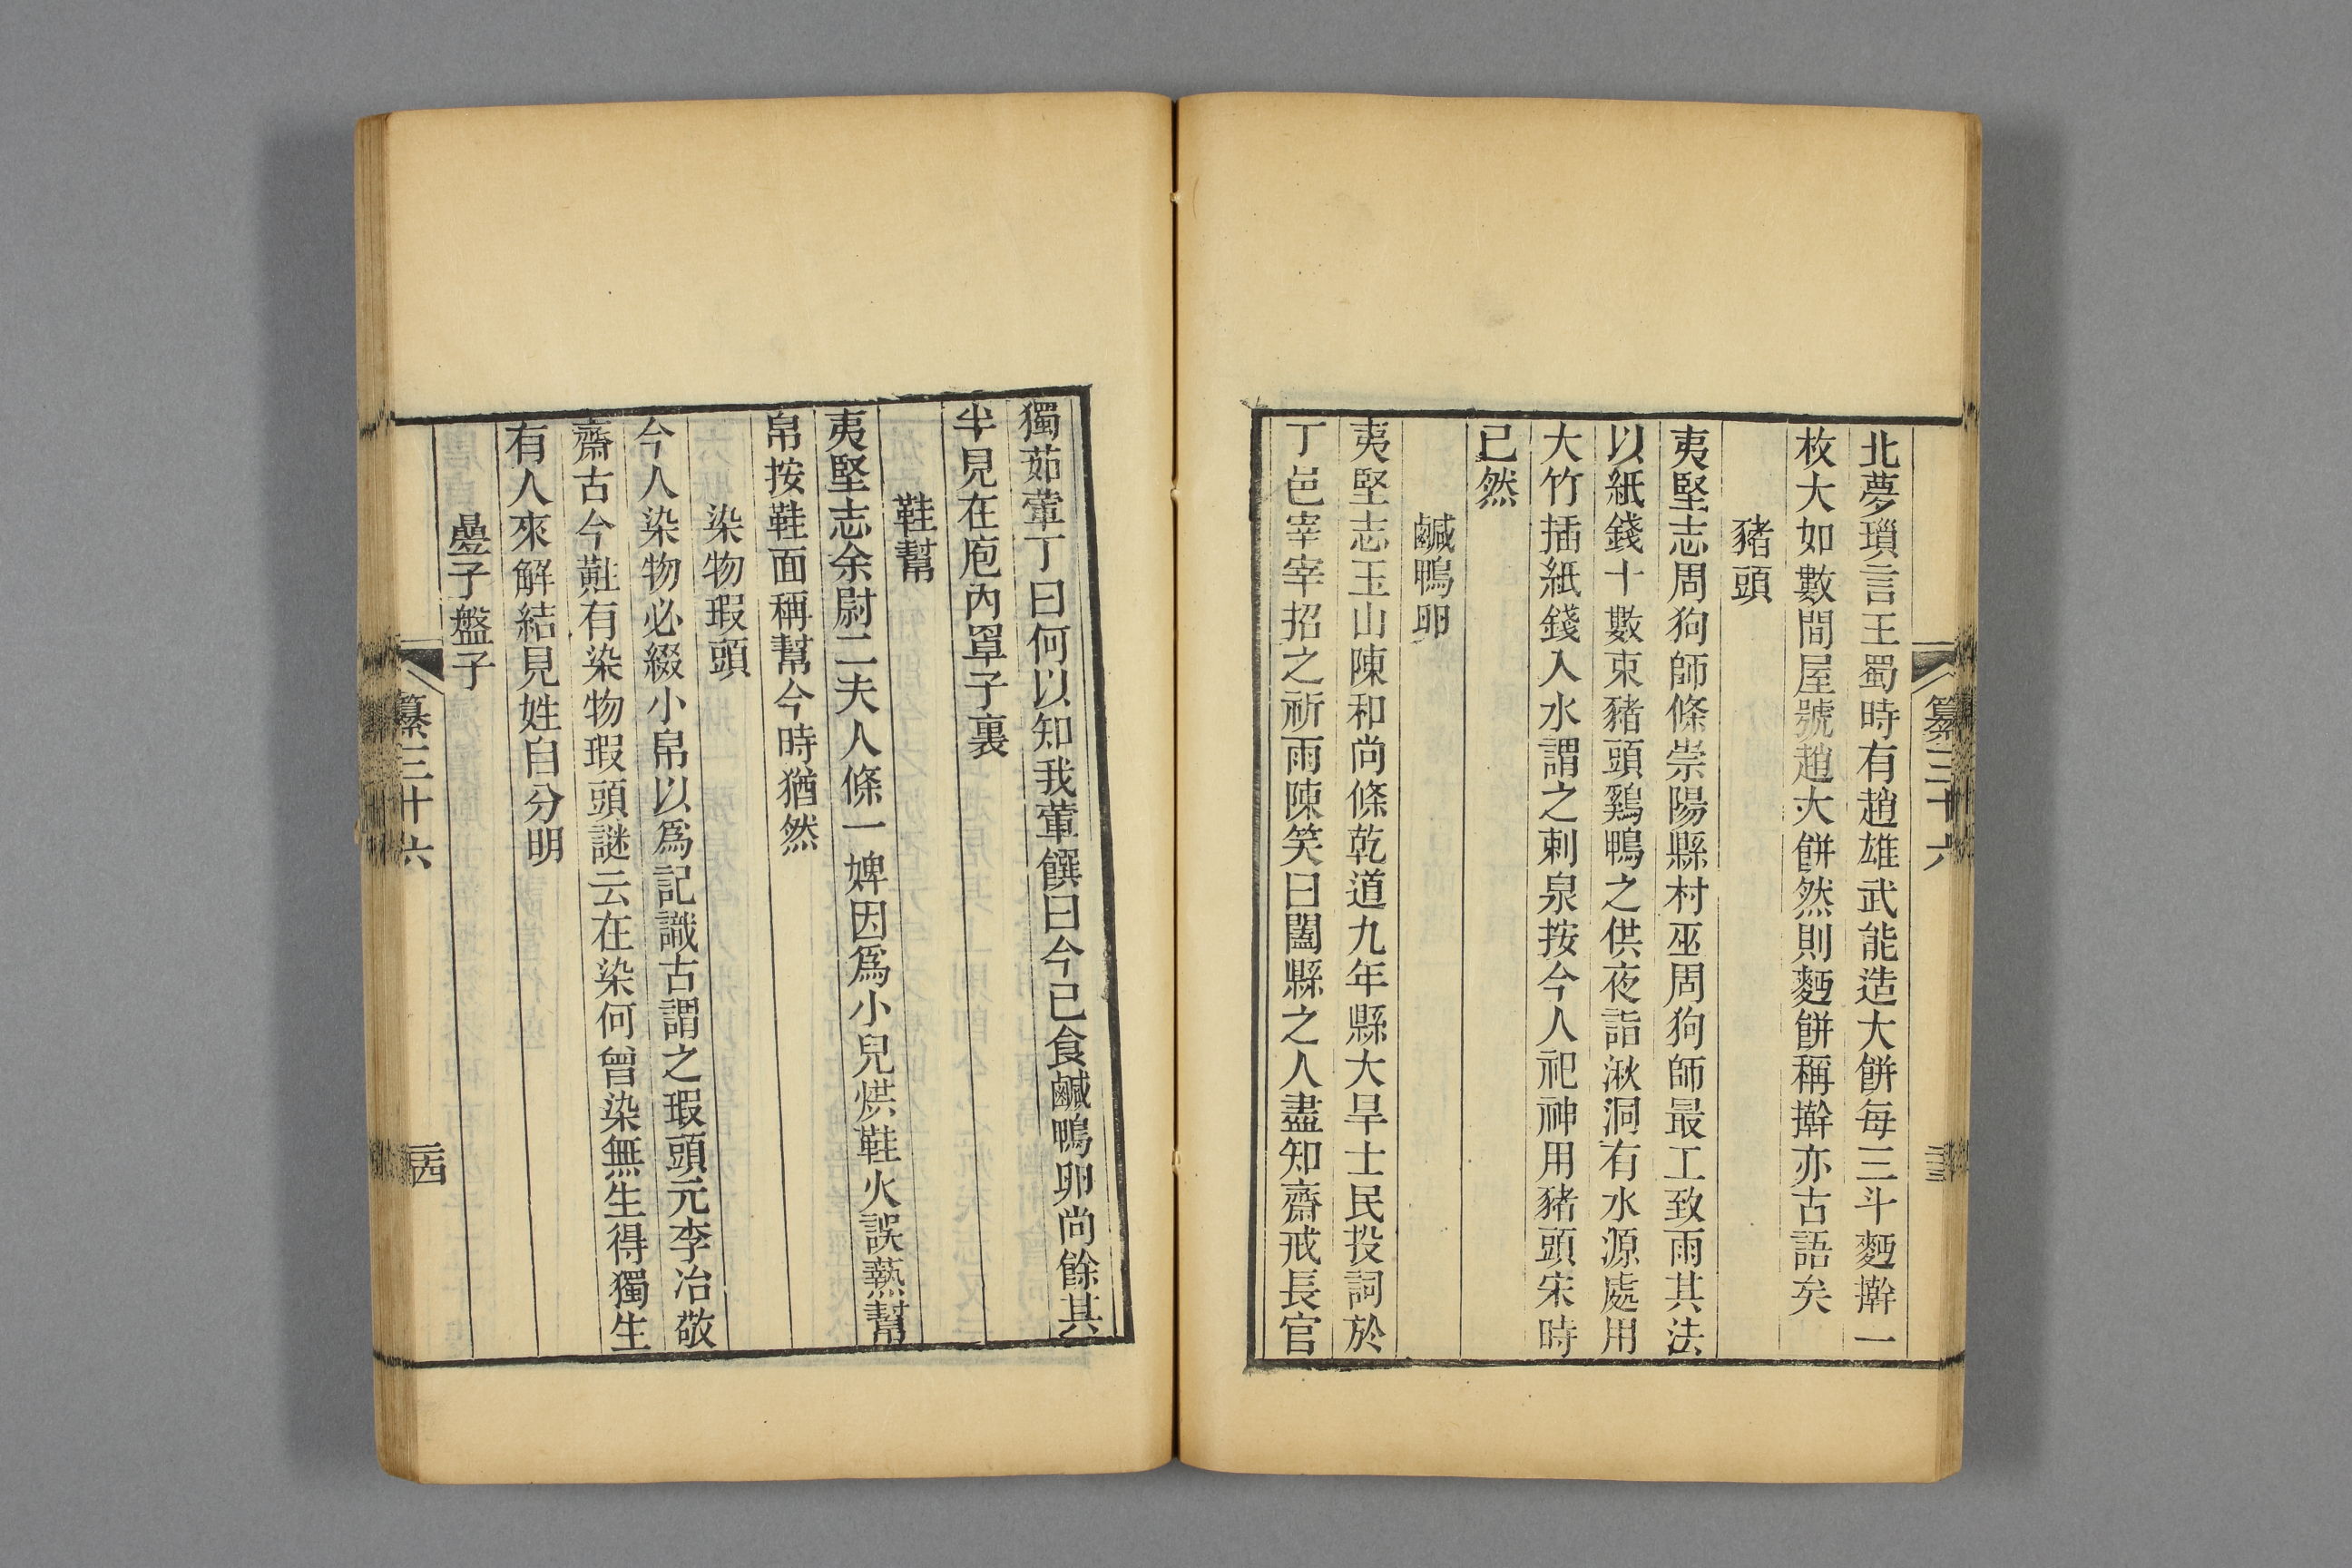 北夢瑣言王蜀時有趙雄武能造大餅每三斗麪擀一
枚大如數間屋號趙大餅然則麪餅稱擀亦古語矣
豬頭
夷堅志周狗師條崇陽縣村巫周狗師最工致雨其法
以紙錢十數束豬頭鷄鴨之供夜詣湫洞有水源處用
大竹插紙錢入水謂之刺泉按今人祀神用豬頭宋時
已然
鹹鴨卵
夷堅志玉山陳和尚條乾道九年縣大旱士民投詞於
丁邑宰宰招之祈雨陳笑曰闔縣之人盡知齋戒長官
獨茹葷丁曰何以知我葷饌曰今已食鹹鴨卵尚餘其
半見在庖內罩子裏
鞋幫
夷堅志余尉二夫人條一婢因爲小兒烘鞋火誤爇幫
帛按鞋面稱幫今時猶然
染物瑕頭
今人染物必綴小帛以爲記識古謂之瑕頭元李冶敬
齋古今黈有染物瑕頭謎云在染何曾染無生得獨生
有人來解結見姓自分明
疊子盤子
纂三十六
二十三
纂三十六
二十四